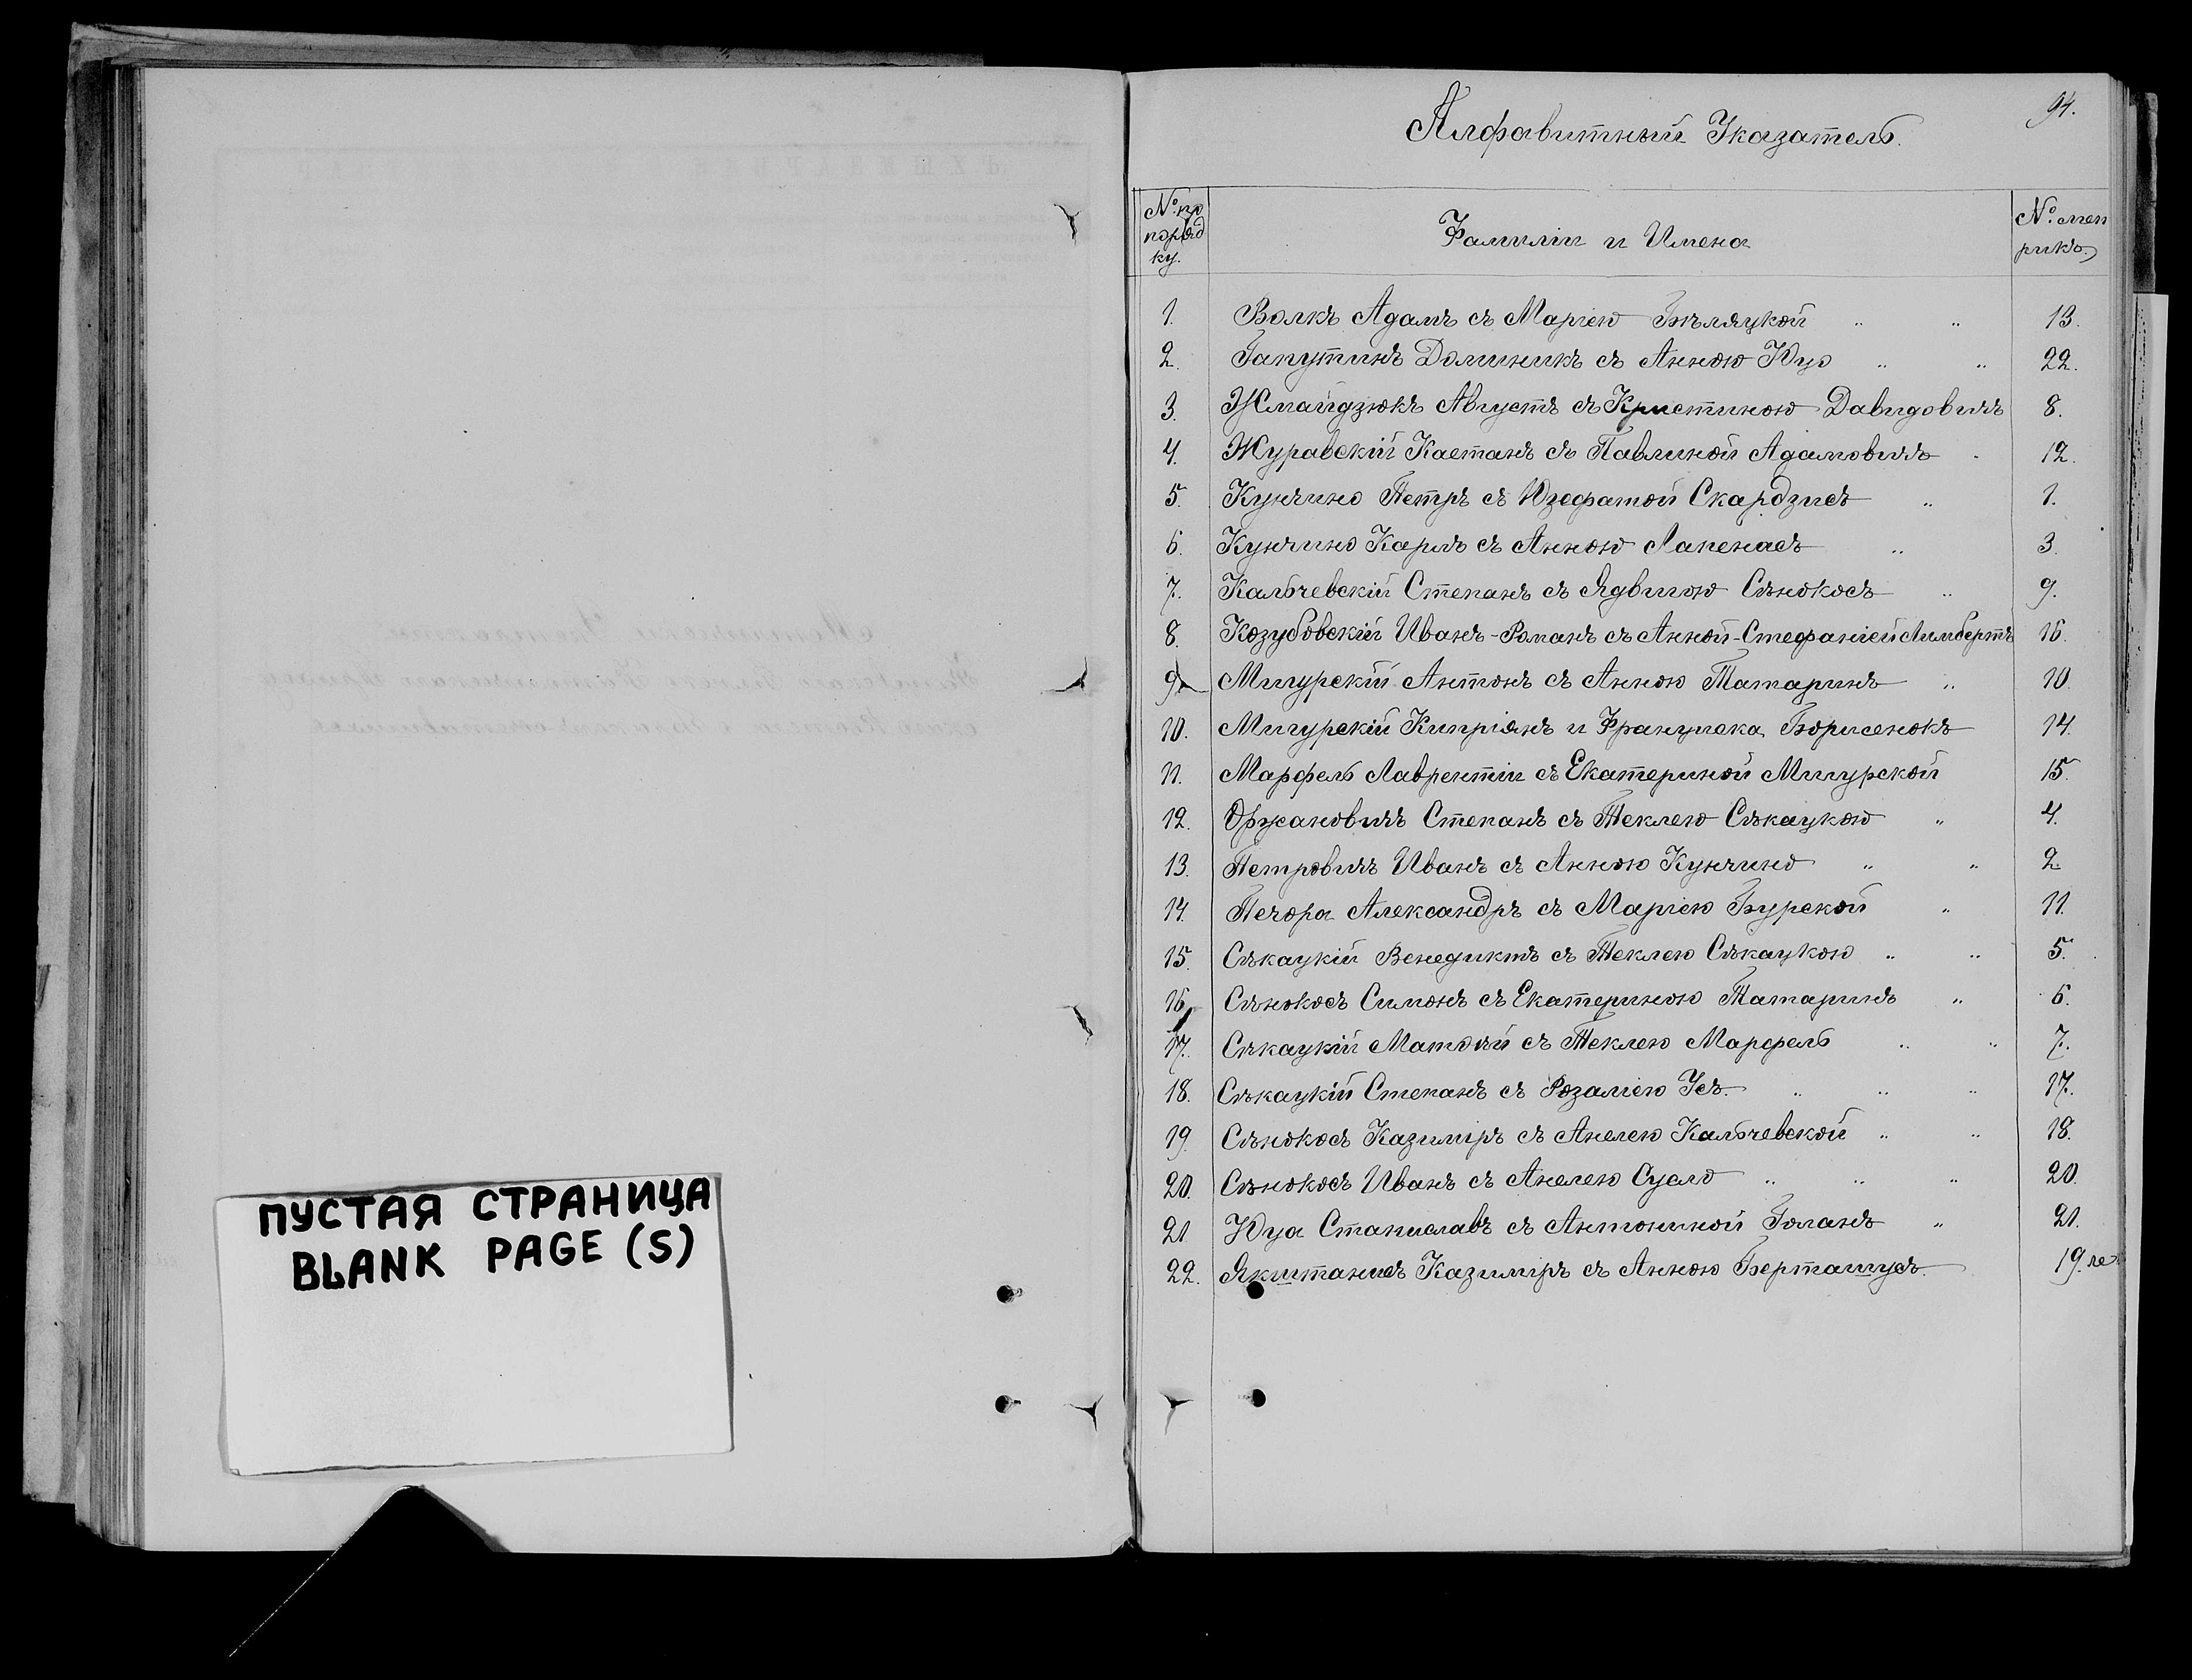 ПУСТАЯ СТРАНИЦА
BLANK PAGE (S)
94.
Алфавитный Указатель.
№ по порядку.
Фамиліи и Имена
№ метрикъ.
1. Волкъ Адамъ съ Маріею Бѣляцкой „ „ 13.
2. Гапутинъ Доминикъ съ Анною Юцо „ „ 22.
3. Жмайдзюкъ Августъ съ Кристиною Давидовичъ 8.
4. Журавскій Каетанъ съ Павлиной Адамовичъ 12.
5. Кунчино Петръ съ Юзефатой Скардзисъ „ 1.
6. Кунчино Карлъ съ Анною Лапенасъ „ 3.
7. Кальчевскій Степанъ съ Ядвигою Сѣнокосъ „ 9.
8. Козубовскій Иванъ-Романъ съ Анной-Стефаніей Лимбертъ 16.
9. Мигурскій Антонъ съ Анною Татаринъ „ 10
10. Мигурскій Кипріянъ и Францишка Борисенокъ 14.
11. Марфель Лаврентій съ Екатериной Мигурской 15.
12. Оржановичъ Степанъ съ Теклею Сѣкацкою „ 4.
13. Петровичъ Иванъ съ Анною Кунчино „ „ 2.
14. Печора Александръ съ Маріею Бурской „ 11.
15. Сѣкацкій Венедиктъ съ Теклею Сѣкацкою „ „ 5.
16. Сѣнокосъ Симонъ съ Екатериною Татаринъ „ 6.
17. Сѣкацкій Матвѣй съ Теклею Марфель „ „ 7.
18. Сѣкацкій Степанъ съ Розаліею Усъ. „ „ „ 17.
19. Сѣнокосъ Казиміръ съ Анелею Кальчевской „ „ 18.
20. Сѣнокосъ Иванъ съ Анелею Суало „ „ „ 20.
21. Юца Станиславъ съ Антониной Голанъ „ 21.
22. Якштанисъ Казиміръ съ Анною Берташусъ. 19.